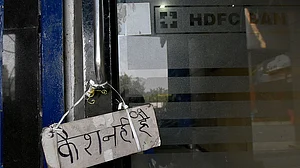 HDFC BAN
कैश नहीं है